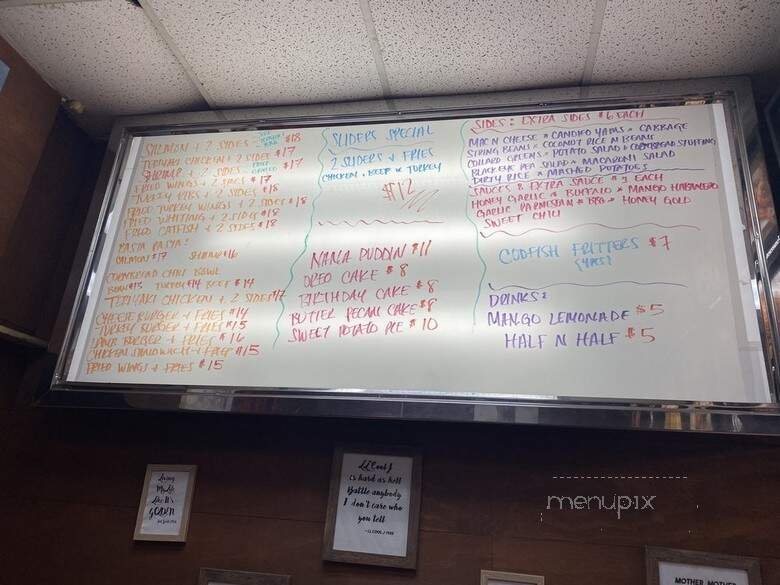 SALMON + 2 SIDES $18
TERIYAKI CHICKEN + 2 SIDES $17
SHRIMP + 2 SIDES $17
FRIED WINGS + 2 SIDES $17
TURKEY RIBS + 2 SIDES $18
FRIED TURKEY WINGS + 2 SIDES $18
FRIED WHITING + 2 SIDES $18
FRIED CATFISH + 2 SIDES $18
RASTA PASTA:
SALMON $17 SHRIMP $16
CORNBREAD CHILI BOWL
BEAN $13 TURKEY $14 BEEF $14
TERIYAKI CHICKEN + 2 SIDES $17
CHEESE BURGER + FRIES $14
TURKEY BURGER + FRIES $15
LAMB BURGER + FRIES $16
CHICKEN SANDWICHES + FRIES $15
FRIED WINGS + FRIES $15
SLIDERS SPECIAL
2 SLIDERS + FRIES
CHICKEN * BEEF * TURKEY
$12
NANA PUDDIN $11
OREO CAKE $8
BIRTHDAY CAKE $8
BUTTER PECAN CAKE $8
SWEET POTATO PIE $10
SIDES: EXTRA SIDES $6 EACH
MAC N CHEESE * CANDIED YAMS * CABBAGE
STRING BEANS * COCONUT RICE N BEANS
COLLARD GREENS * POTATO SALAD * CORNBREAD STUFFING
BLACK EYE PEA SALAD * MACARONI SALAD
DIRTY RICE * MASHED POTATOES
SAUCES & EXTRA SAUCE EACH
HONEY GARLIC * BUFFALO * MANGO HABANERO
GARLIC PARMESAN * BBQ * HONEY GOLD
SWEET CHILI
CODFISH FRITTERS $7
DRINKS:
MANGO LEMONADE $5
HALF N HALF $5
Living
My Life
Like It's
GOLDEN
LL Cool J
is hard as hell
Battle anybody
I don't care who
you tell
-LL COOL J
menupix
MOTHER MOTHER